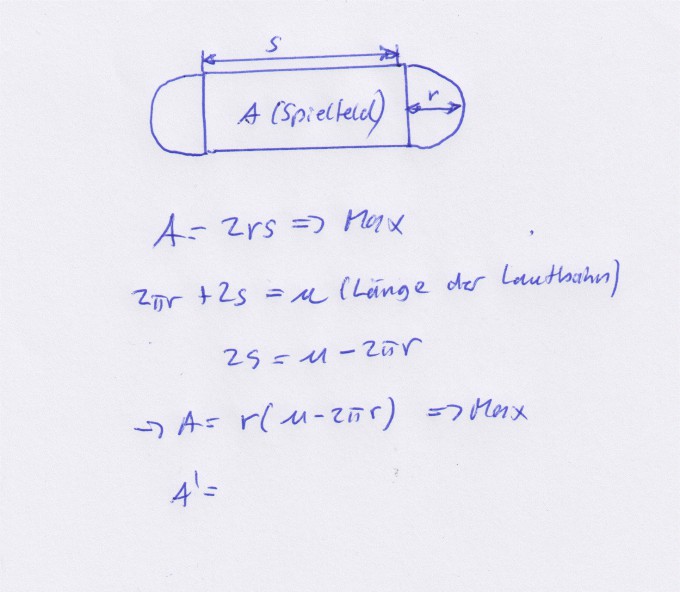 s
A (Spielfeld)
r
A = 2rs => Max
2πr + 2s = u (Länge der Laufbahn)
2s = u - 2πr
-> A = r(u - 2πr) => Max
A' =